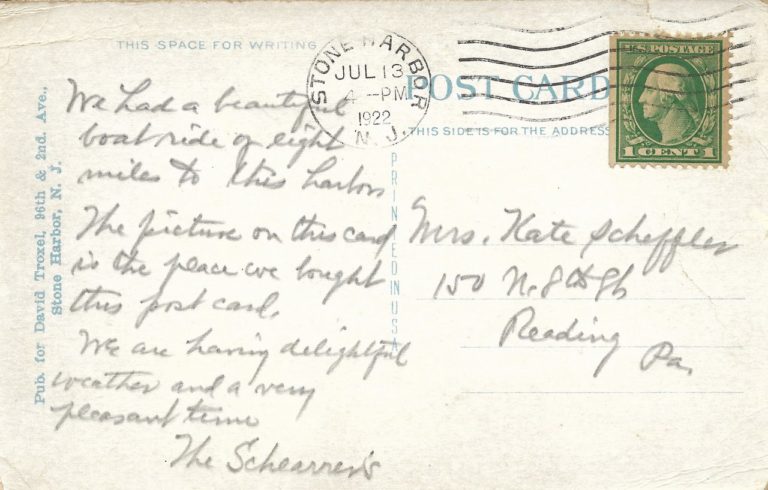 THIS SPACE FOR WRITING
STONE HARBOR
JUL 13
4 -PM
1922
N. J.
U.S. POSTAGE
1 CENT 1
POST CARD
THIS SIDE IS FOR THE ADDRESS
We had a beautiful
boat ride of eight
miles to this harbor
The picture on this card
is the place we bought
this post card.
We are having delightful
weather and a very
pleasant time
The Schearrer's
Mrs. Kate Scheffler
150 N. 8th St
Reading
Pa.
PRINTED IN USA
Pub. for David Troxel, 96th & 2nd. Ave.,
Stone Harbor, N. J.